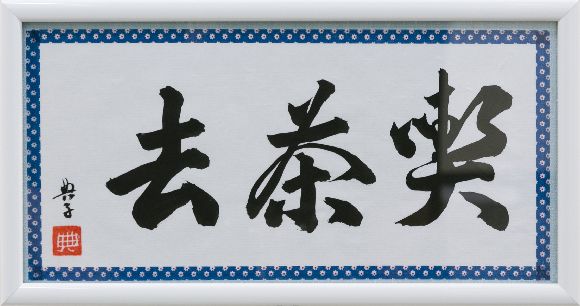 喫茶去
典子
典